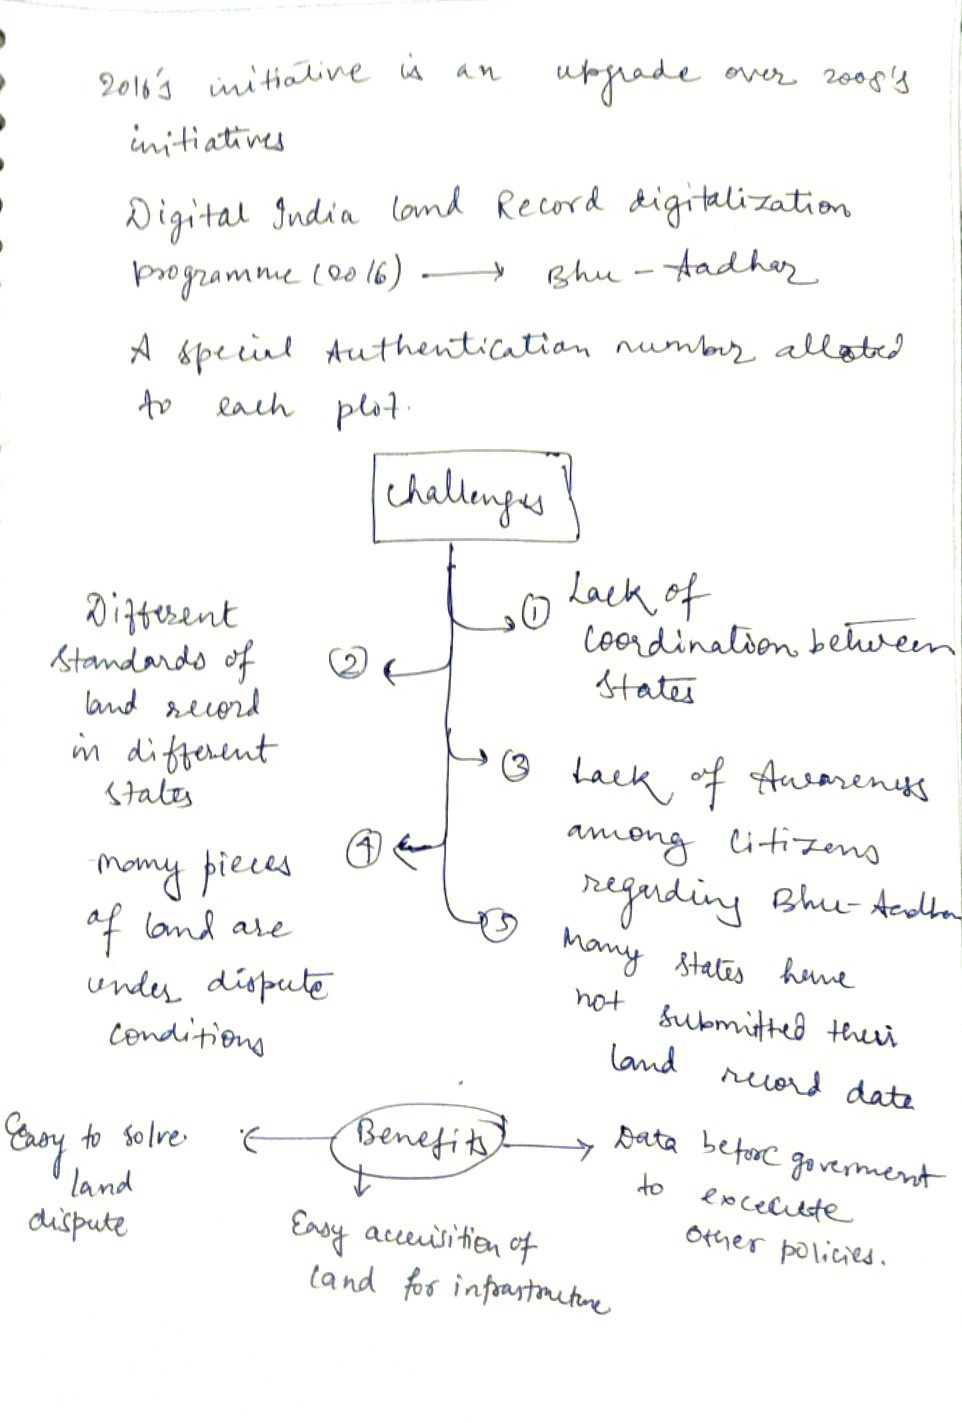 2016's initiative is an upgrade over 2008's
initiatives
Digital India land Record digitalization
programme (2016) → Bhu-Aadhar
A special Authentication number alloted
to each plot.
Challenges
① Lack of
coordination between
states
② Different
standards of
land record
in different
states
③ Lack of Awareness
among citizens
regarding Bhu-Aadhar
④ many pieces
of land are
under dispute
conditions
⑤ Many states have
not submitted their
land record data
Benefits
Easy to solve
land
dispute
Easy accuisition of
land for infrastructure
Data before goverment
to excecute
other policies.